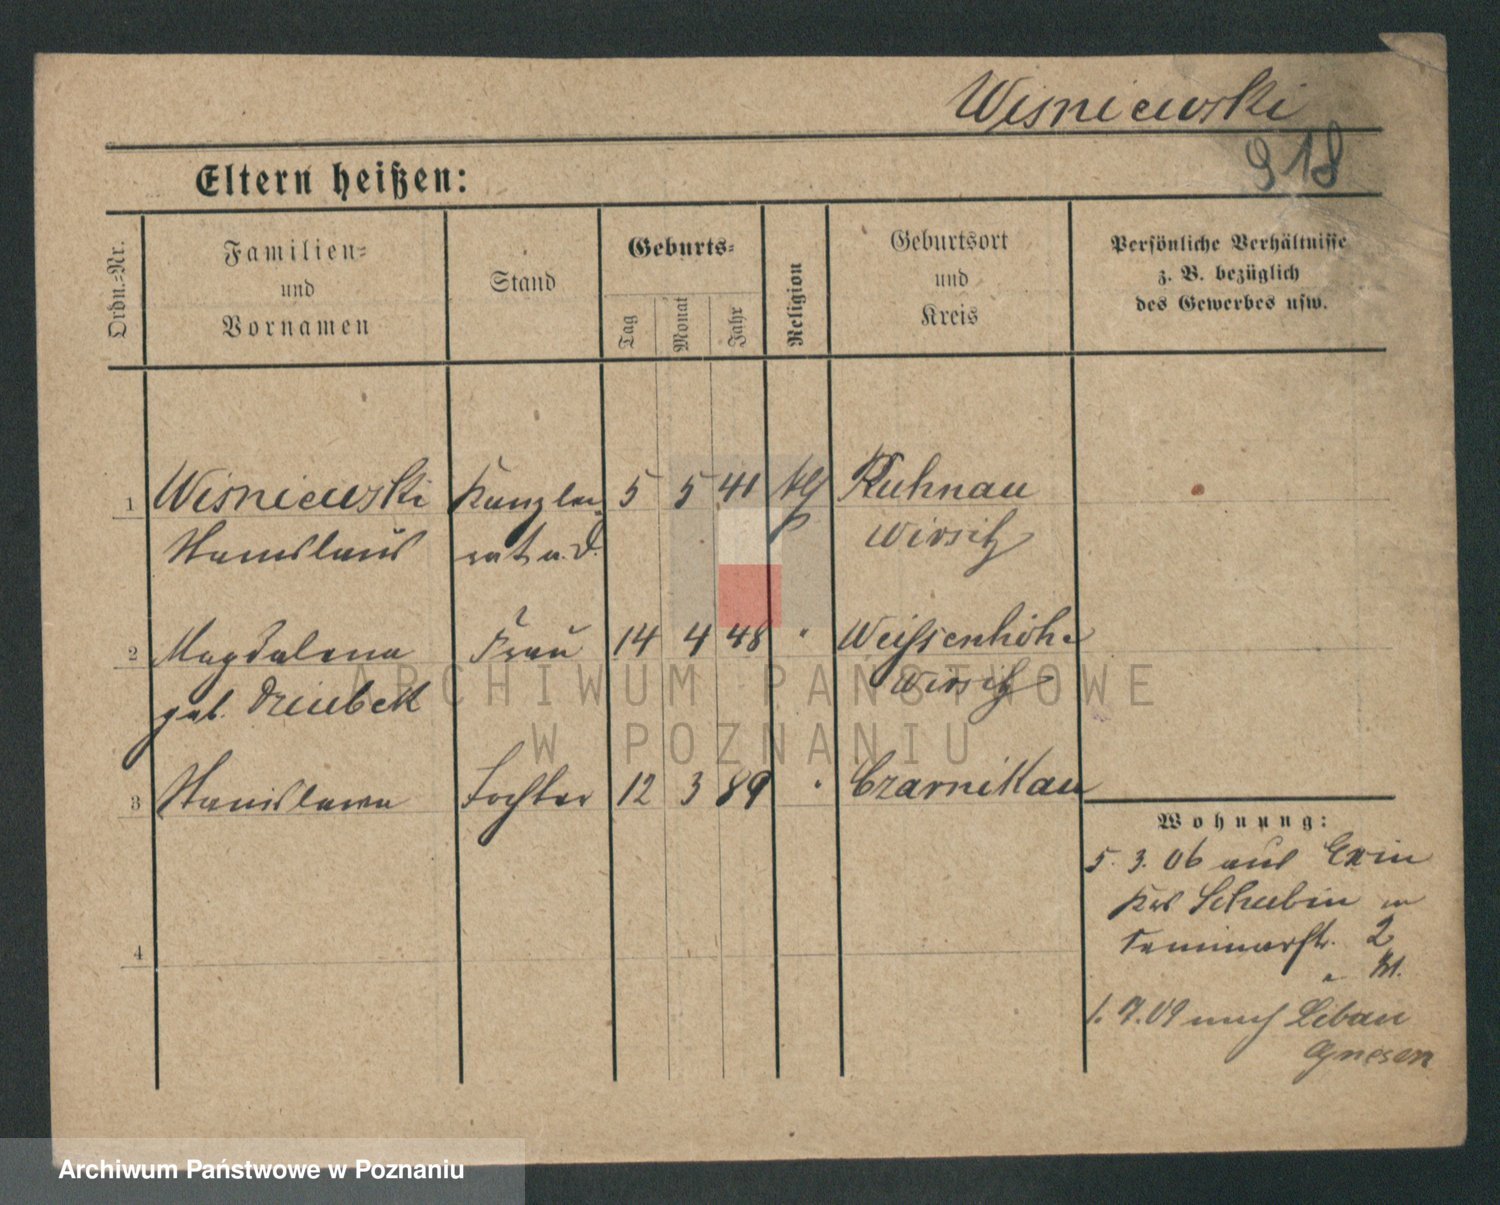 Wisniewski
918
Eltern heißen:
Ordn.-Nr.
Familien-
und
Vornamen
Stand
Geburts-
Tag
Monat
Jahr
Religion
Geburtsort
und
Kreis
Persönliche Verhältnisse
z. B. bezüglich
des Gewerbes usw.
1 Wisniewski Kanzlei- 5 5 41 kth Ruhnau
Stanislaus rat a. D. Wirsitz
2 Magdalena Frau 14 4 48 " Weißenhöhe
geb. Dziubek Wirsitz
3 Stanislawa Tochter 12 3 89 " Czarnikau
4
Wohnung:
5. 3. 06 aus Exin
Krs Schubin in
Seminarstr. 2
1. 7. 09 nach Libau
Gnesen
ARCHIWUM PAŃSTWOWE
W POZNANIU
Archiwum Państwowe w Poznaniu